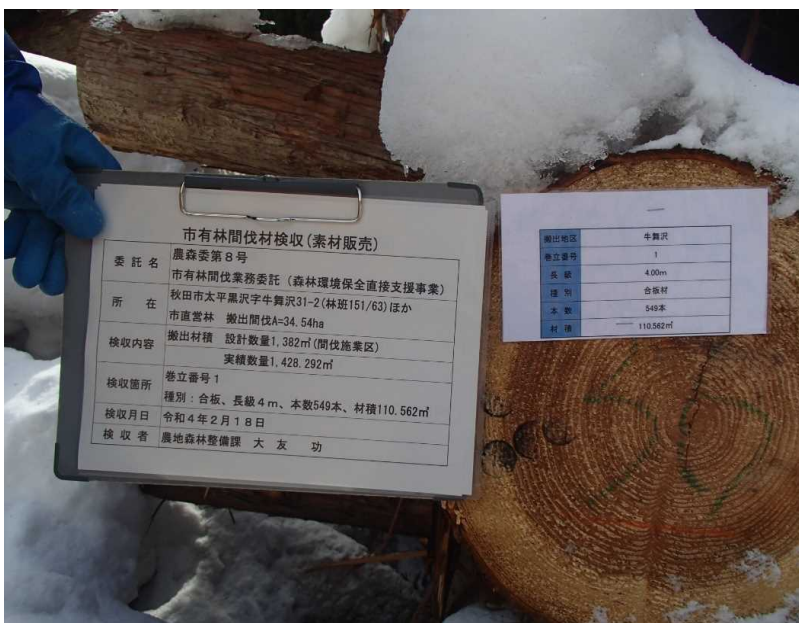 市有林間伐材検収(素材販売)
委託名 農森委第8号
市有林間伐業務委託(森林環境保全直接支援事業)
所在 秋田市太平黒沢字牛舞沢31-2(林班151/63)ほか
市直営林 搬出間伐A=34.54ha
検収内容 搬出材積 設計数量1,382㎥(間伐施業区)
実績数量1,428.292㎥
検収箇所 巻立番号1
種別:合板、長級4m、本数549本、材積110.562㎥
検収月日 令和4年2月18日
検収者 農地森林整備課 大友 功
搬出地区 牛舞沢
巻立番号 1
長級 4.00m
種別 合板材
本数 549本
材積 110.562㎥